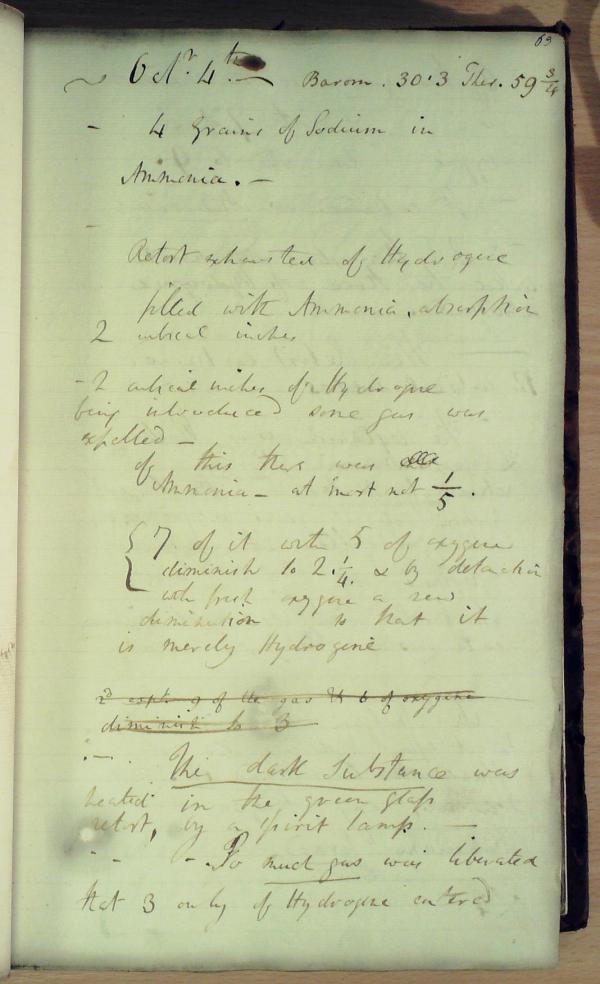 63
Octr. 4th — Barom. 30.3 Ther. 59 3/4
- 4 Grains of Sodium in
Ammonia. -
Retort exhausted of Hydrogene
filled with Ammonia. absorption
2 cubical inches
- 2 cubical inches of Hydrogene
being introduced some gas was
expelled -
of this there was
Ammonia - at most not 1/5.
{ 7 of it with 5 of oxygene
diminish to 2.1/4. & by detonation
with fresh oxygene a new
diminution so that it
is merely Hydrogene
2d expt. 9 of the gas & 6 of oxygene
diminish to 3
The dark substance was
heated in the green glass
retort, by a spirit lamp. —
- - - So much gas was liberated
that 3 only of Hydrogene entered